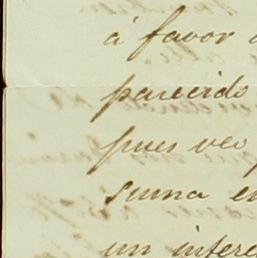 á favor
parecido
pues veo
suma en
un intere